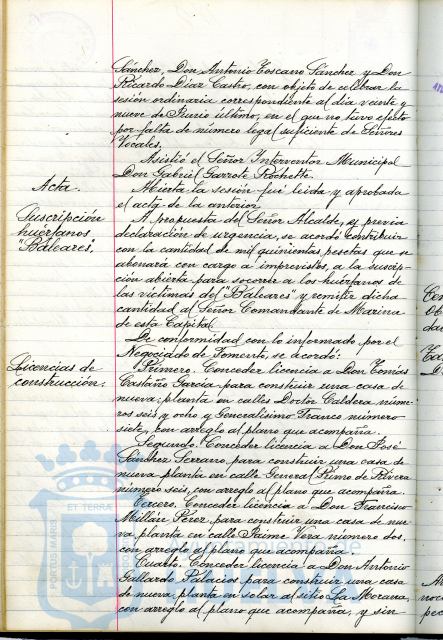 Sánchez, Don Antonio Toscano Sánchez y Don
Ricardo Díaz Castro, con objeto de celebrar la
sesión ordinaria correspondiente al día veinte y
nueve de Junio último, en el que no tuvo efecto
por falta de número legal suficiente de Señores
Vocales.
Asistió el Señor Interventor Municipal
Don Gabriel Garrote Rochette.
Acta.
Abierta la sesión fué leida y aprobada
el acta de la anterior.
Suscripción
huérfanos
"Baleares".
A propuesta del Señor Alcalde, y previa
declaración de urgencia, se acordó contribuir
con la cantidad de mil quinientas pesetas que se
abonará con cargo a imprevistos, a la suscrip-
ción abierta para socorrer a los huérfanos de
las víctimas del "Baleares" y remitir dicha
cantidad al Señor Comandante de Marina
de esta Capital.
Licencias de
construcción.
De conformidad con lo informado por el
Negociado de Fomento, se acordó:
Primero. Conceder licencia a Don Tomás
Castaño García para construir una casa de
nueva planta en calles Doctor Caldera núme-
ros seis y ocho y Generalísimo Franco número
siete, con arreglo al plano que acompaña.
Segundo. Conceder licencia a Don José
Sánchez Serrano para construir una casa de
nueva planta en calle General Primo de Rivera
número seis, con arreglo al plano que acompaña.
Tercero. Conceder licencia a Don Francisco
Millán Pérez para construir una casa de nue-
va planta en calle Jaume Vera número dos,
con arreglo al plano que acompaña.
Cuarto. Conceder licencia a Don Antonio
Gallardo Palacios para construir una casa
de nueva planta en solar al sitio La Morana,
con arreglo al plano que acompaña, y sin
PORTUS MARIS
ET TERRA
Ayuntamiento de